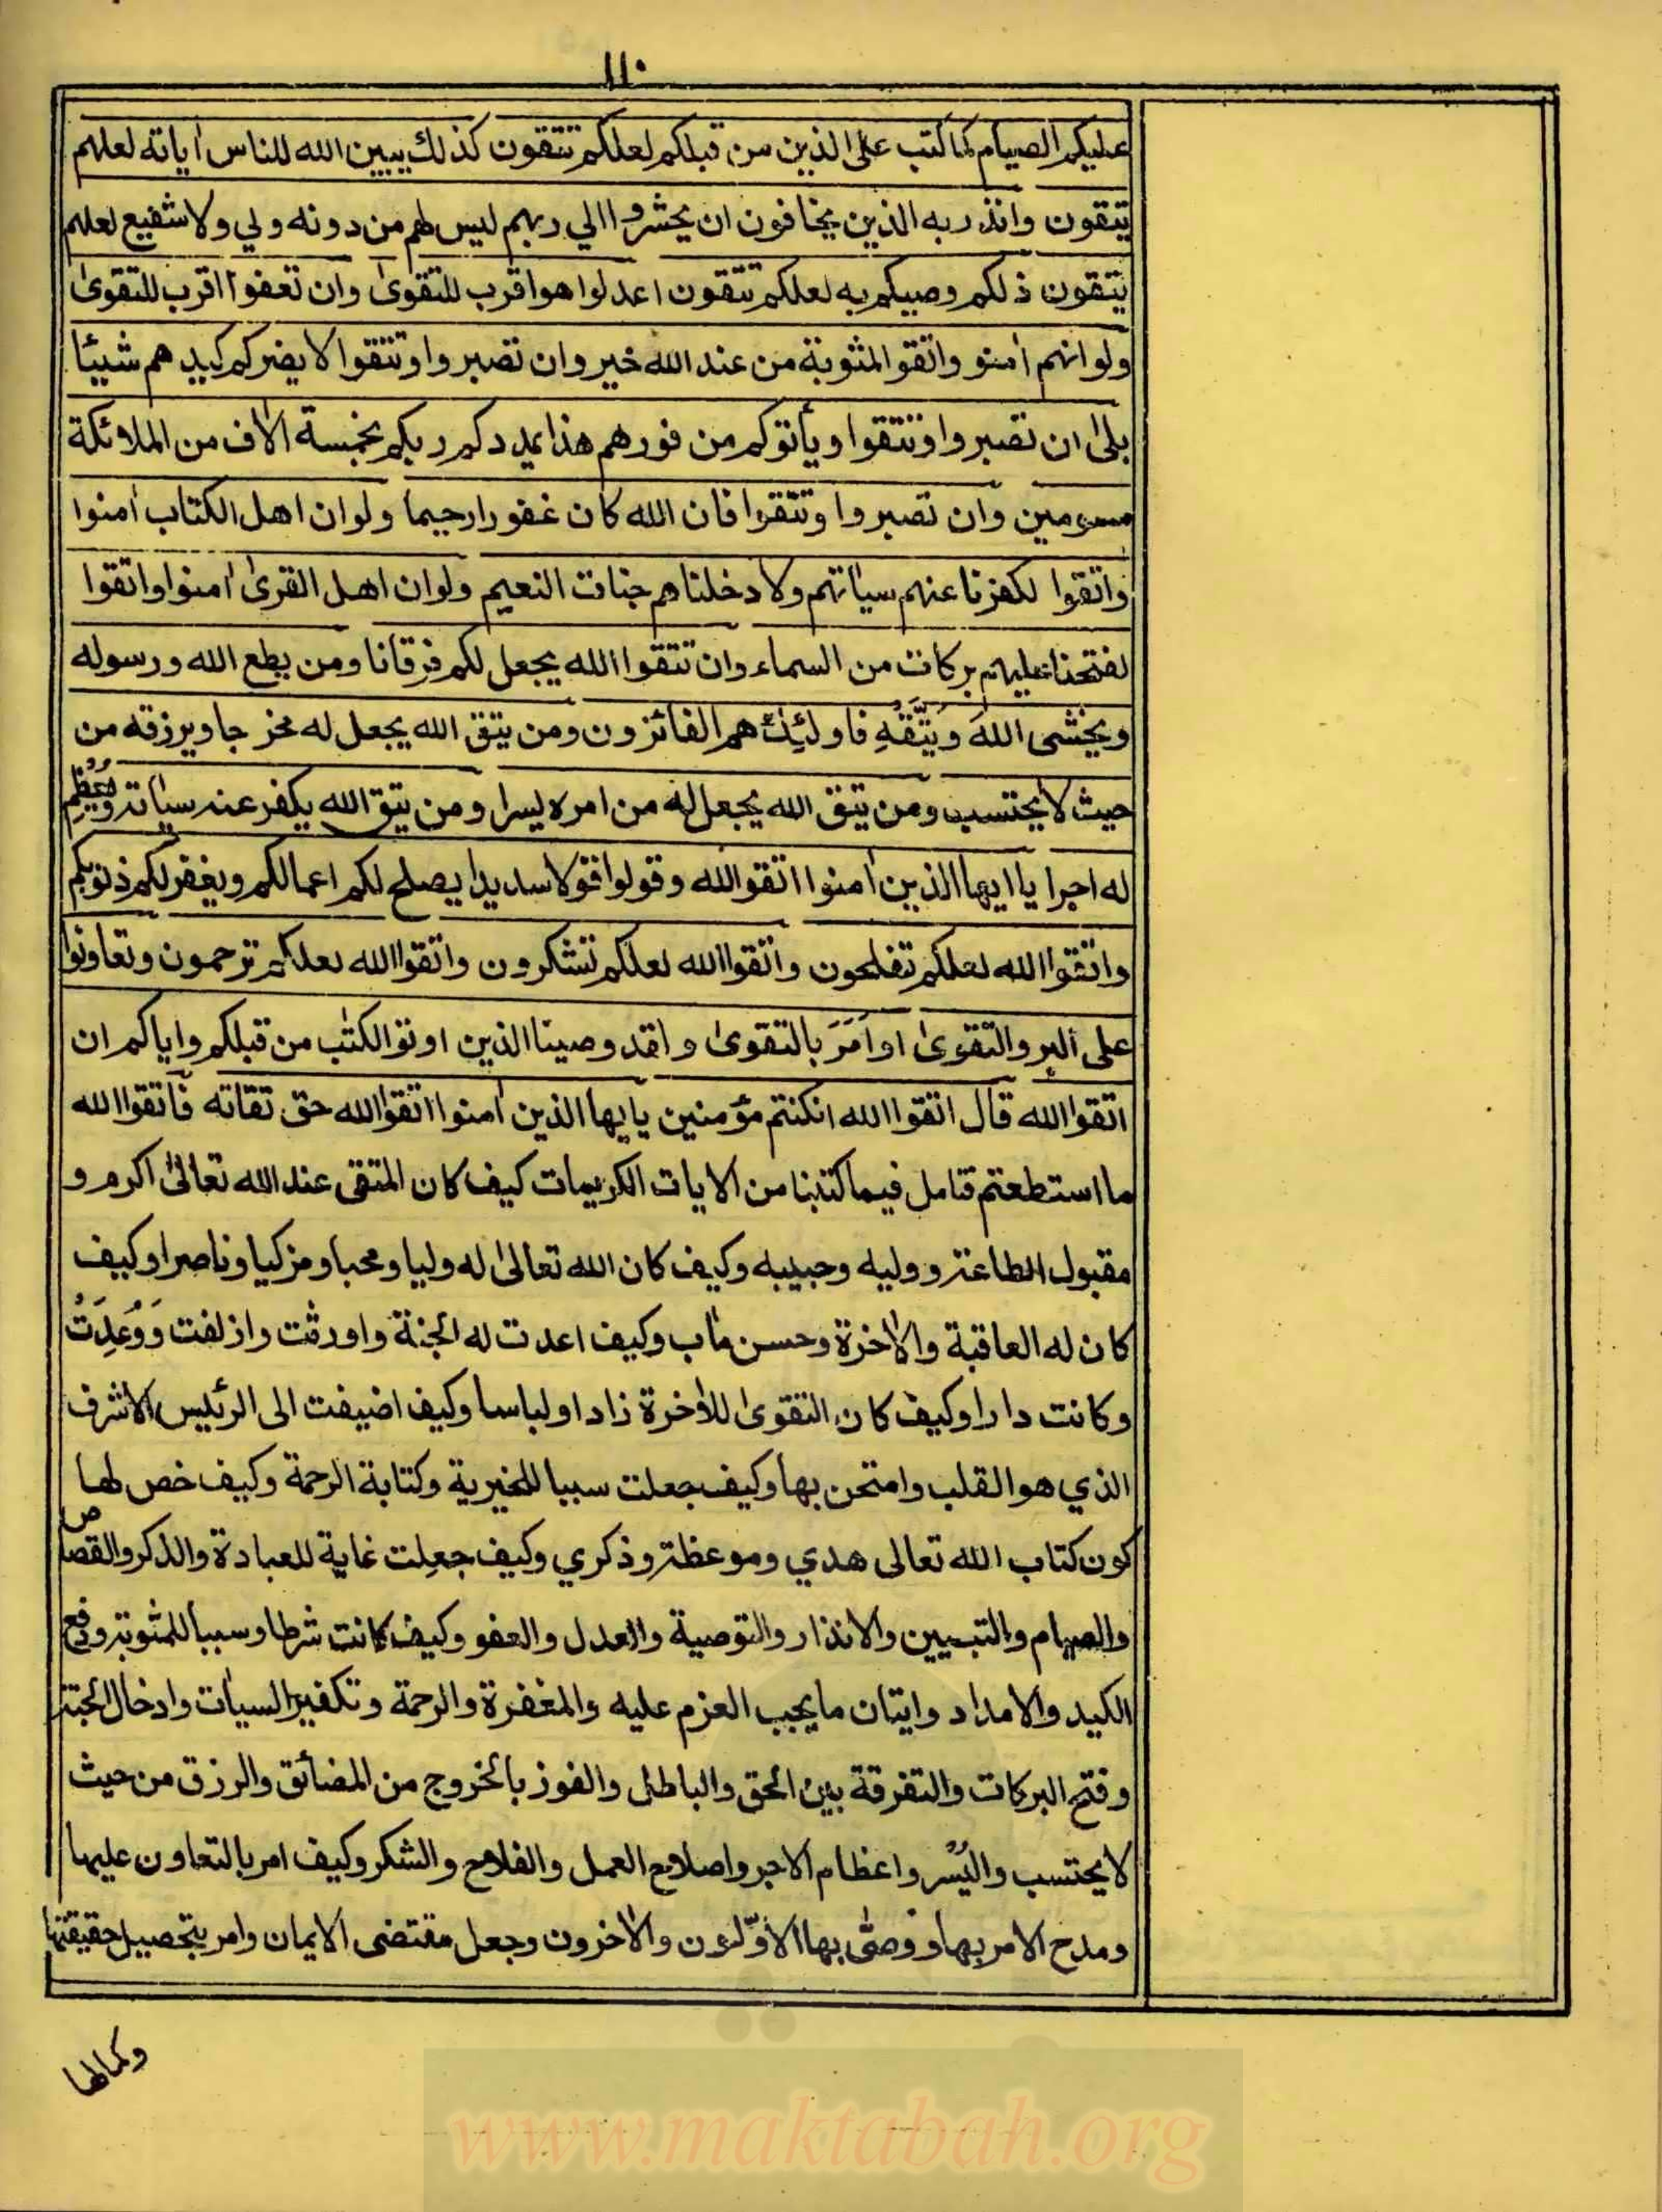 ١١٠
عليكم الصيام كما كتب على الذين من قبلكم لعلكم تتقون كذلك يبين الله للناس اٰياته لعلهم
يتقون وانذر به الذين يخافون ان يحشروا الي ربهم ليس لهم من دونه ولي ولا شفيع لعلهم
يتقون ذلكم وصيكم به لعلكم تتقون اعدلوا هو اقرب للتقوىٰ وان تعفوا اقرب للتقوىٰ
ولو انهم اٰمنو واتقو المثوبة من عند الله خير وان تصبروا وتتقوا لا يضركم كيدهم شيئا
بلىٰ ان تصبروا وتتقوا ويأتوكم من فورهم هذا يمددكم ربكم بخمسة اٰلاف من الملائكة
مسومين وان تصبروا وتتقوا فان الله كان غفورا رحيما ولو ان اهل الكتاب اٰمنوا
واتقوا لكفرنا عنهم سيأتهم ولادخلناهم جنات النعيم ولو ان اهل القرىٰ اٰمنوا واتقوا
لفتحنا عليهم بركات من السماء وان تتقوا الله يجعل لكم فرقانا ومن يطع الله ورسوله
ويخشى اللهَ وَيَتَّقْهِ فاولئِكَ هم الفائزون ومن يتق الله يجعل له مخرجا ويرزقه من
حيث لا يحتسب ومن يتق الله يجعل له من امره يسرا ومن يتق الله يكفر عنه سيأته وَيُعْظِم
له اجرا يا ايها الذين اٰمنوا اتقوالله وقولوا قولا سديدا يصلح لكم اعمالكم ويغفر لكم ذنوبكم
واتقوا الله لعلكم تفلحون واتقوا الله لعلكم تشكرون واتقوا الله لعلكم ترحمون وتعاونوا
على البر والتقوىٰ او اَمَرَ بالتقوىٰ ولقد وصينا الذين اوتوالكتٰب من قبلكم واياكم ان
اتقوا الله قال اتقوا الله انكنتم مؤمنين يايها الذين اٰمنوا اتقوا الله حق تقاته فاتقوا الله
ما استطعتم فتامل فيما كتبنا من الايات الكريمات كيف كان المتقى عند الله تعالىٰ اكرم و
مقبول الطاعة ووليه وحبيبه وكيف كان الله تعالىٰ له وليا ومحبا ومزكيا وناصرا وكيف
كان له العاقبة والاٰخرة وحسن ماٰب وكيف اعدت له الجنة واورثت وازلفت وَوُعِدَتْ
وكانت دارا وكيف كان التقوىٰ للاٰخرة زادا ولباسا وكيف اضيفت الى الرئيس الاشرف
الذي هو القلب وامتحن بها وكيف جعلت سببا للخيرية وكتابة الرحمة وكيف خص لها
كون كتاب الله تعالى هدي وموعظة وذكري وكيف جعِلت غاية للعبادة والذكر والقصاص
والصيام والتبيين والانذار والتوصية والعدل والعفو وكيف كانت شرطا وسببا للمثوبة ودفع
الكيد والامداد وايتان ما يجب العزم عليه والمغفرة والرحمة وتكفير السيأت وادخال الجنة
وفتح البركات والتفرقة بين الحق والباطل والفوز بالخروج من المضائق والرزق من حيث
لا يحتسب واليُسْر واعظام الاجر واصلاح العمل والفلاح والشكر وكيف امر بالتعاون عليها
ومدح الامر بها ووصّى بها الاوّلون والاٰخرون وجعل مقتضى الايمان وامر بتحصيل حقيقتها
وكمالها
www.maktabah.org